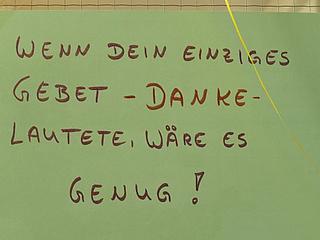 WENN DEIN EINZIGES
GEBET - DANKE -
LAUTETE, WÄRE ES
GENUG!